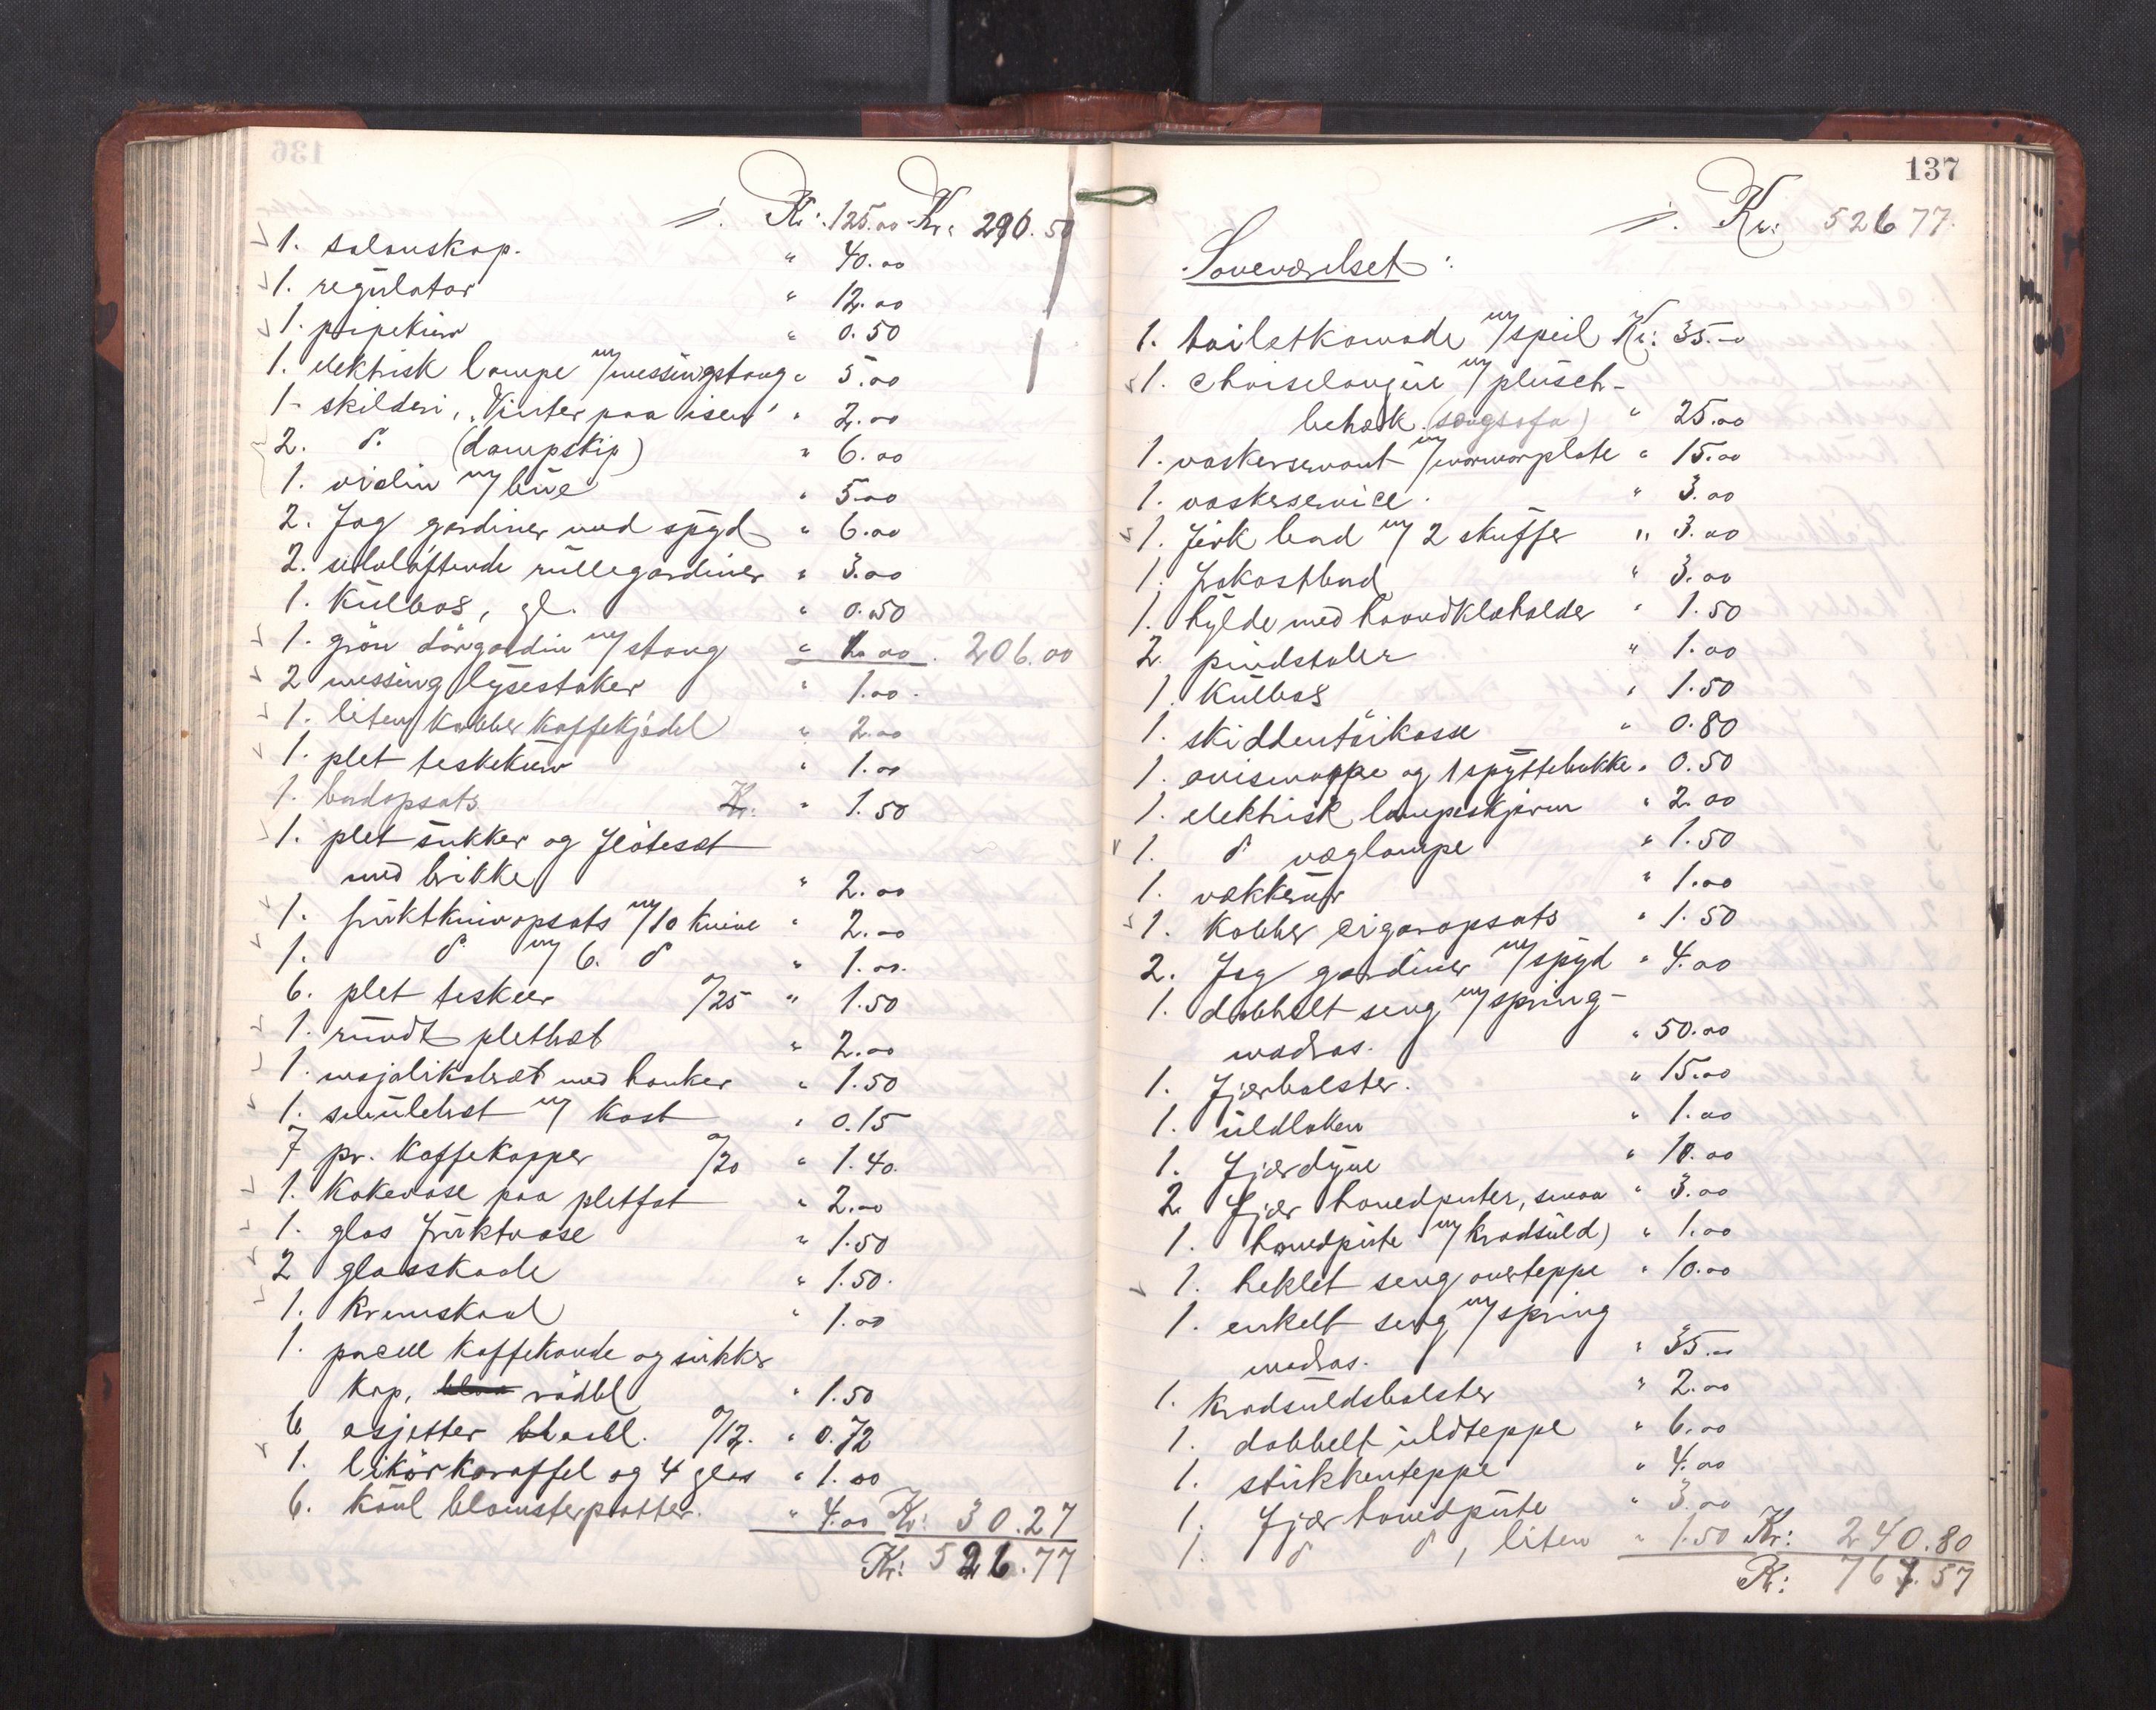 ./. Kr: 125.00 Kr: 290.50
1. salonskap. " 40.00
1. regulator " 12.00
1. pipekurv " 0.50
1. elektrisk lampe m/messingstang " 5.00
1. skilderi, "Vinter paa isen" " 2.00
2. do. (dampskip) " 6.00
1. violin m/bue " 5.00
2. fag gardiner med spyd " 6.00
2. selvløftende rullegardiner " 3.00
1. kulbox, gl. " 0.50
1. grön dörgardin m/stang " 1.00. 206.00
2 messing lysestaker " 1.00.
1. liten kobber kaffekjedel " 2.00
1. plet teskekurv " 1.00
1. bordopsats Kr. " 1.50
1. plet sukker og flötesæt
med brikke " 2.00
1. fruktknivopsats m/10 knive " 2.00
1. do. m/ 6. do " 1.00.
6. plet teskeer a/25 " 1.50
1. rundt pletbræt " 2.00
1. majolikabræt med hanker " 1.50
1. smulebræt m/ kost " 0.15
7 pr. kaffekopper a/20 " 1.40.
1. kakevase paa pletfat " 2.00
1. glas fruktvase " 1.50
2 glasskaale " 1.50.
1. kremskaal " 1.00
1. porcell kaffekande og sukker
kop, blaa rödbl " 1.50
6 asjetter blaabl. a/12. " 0.72
1. likörkaraffel og 4 glas " 1.00
6. blomsterpotter. " 4.00 Kr: 30.27
Kr: 526.77
137
./. Kr: 526 77.
Soveværelset:
1. toiletkomode m/speil Kr: 35.00
1. chaiselongue m/plusch-
betræk (sengsofa) " 25.00
1. vaskeservant m/marmorplate " 15.00
1. vaskeservice. " 3.00
1. firk bord m/ 2 skuffer " 3.00
1. frokostbord " 3.00
1. hylde med haandklæholder " 1.50
2. pindstoler " 1.00
1. kulbox " 1.50
1. skiddentöikasse " 0.80
1. avismappe og 1 spyttebakke " 0.50
1. elektrisk lampeskjærm " 2.00
1. do væglampe " 1.50
1. vækkerur " 1.00
1. kobber cigaropsats " 1.50
2. fag gardiner m/spyd " 4.00
1. dobbelt seng m/spring-
madras. " 50.00
1. fjærbolster. " 15.00
1. uldlaken " 1.00
1. fjærdyne " 10.00
2. fjær hovedputer, smaa " 3.00
1. hovedpute m/kradsuld) " 1.00
1. heklet seng overteppe " 10.00
1. enkelt seng m/spring
madras. " 35.00
1. kradsuldsbolster " 2.00
1. dobbelt uldteppe " 6.00
1. stukkenteppe " 4.00
1. fjær hovedpute " 3.00
1. do do, liten " 1.50 Kr: 240.80
Kr: 767.57